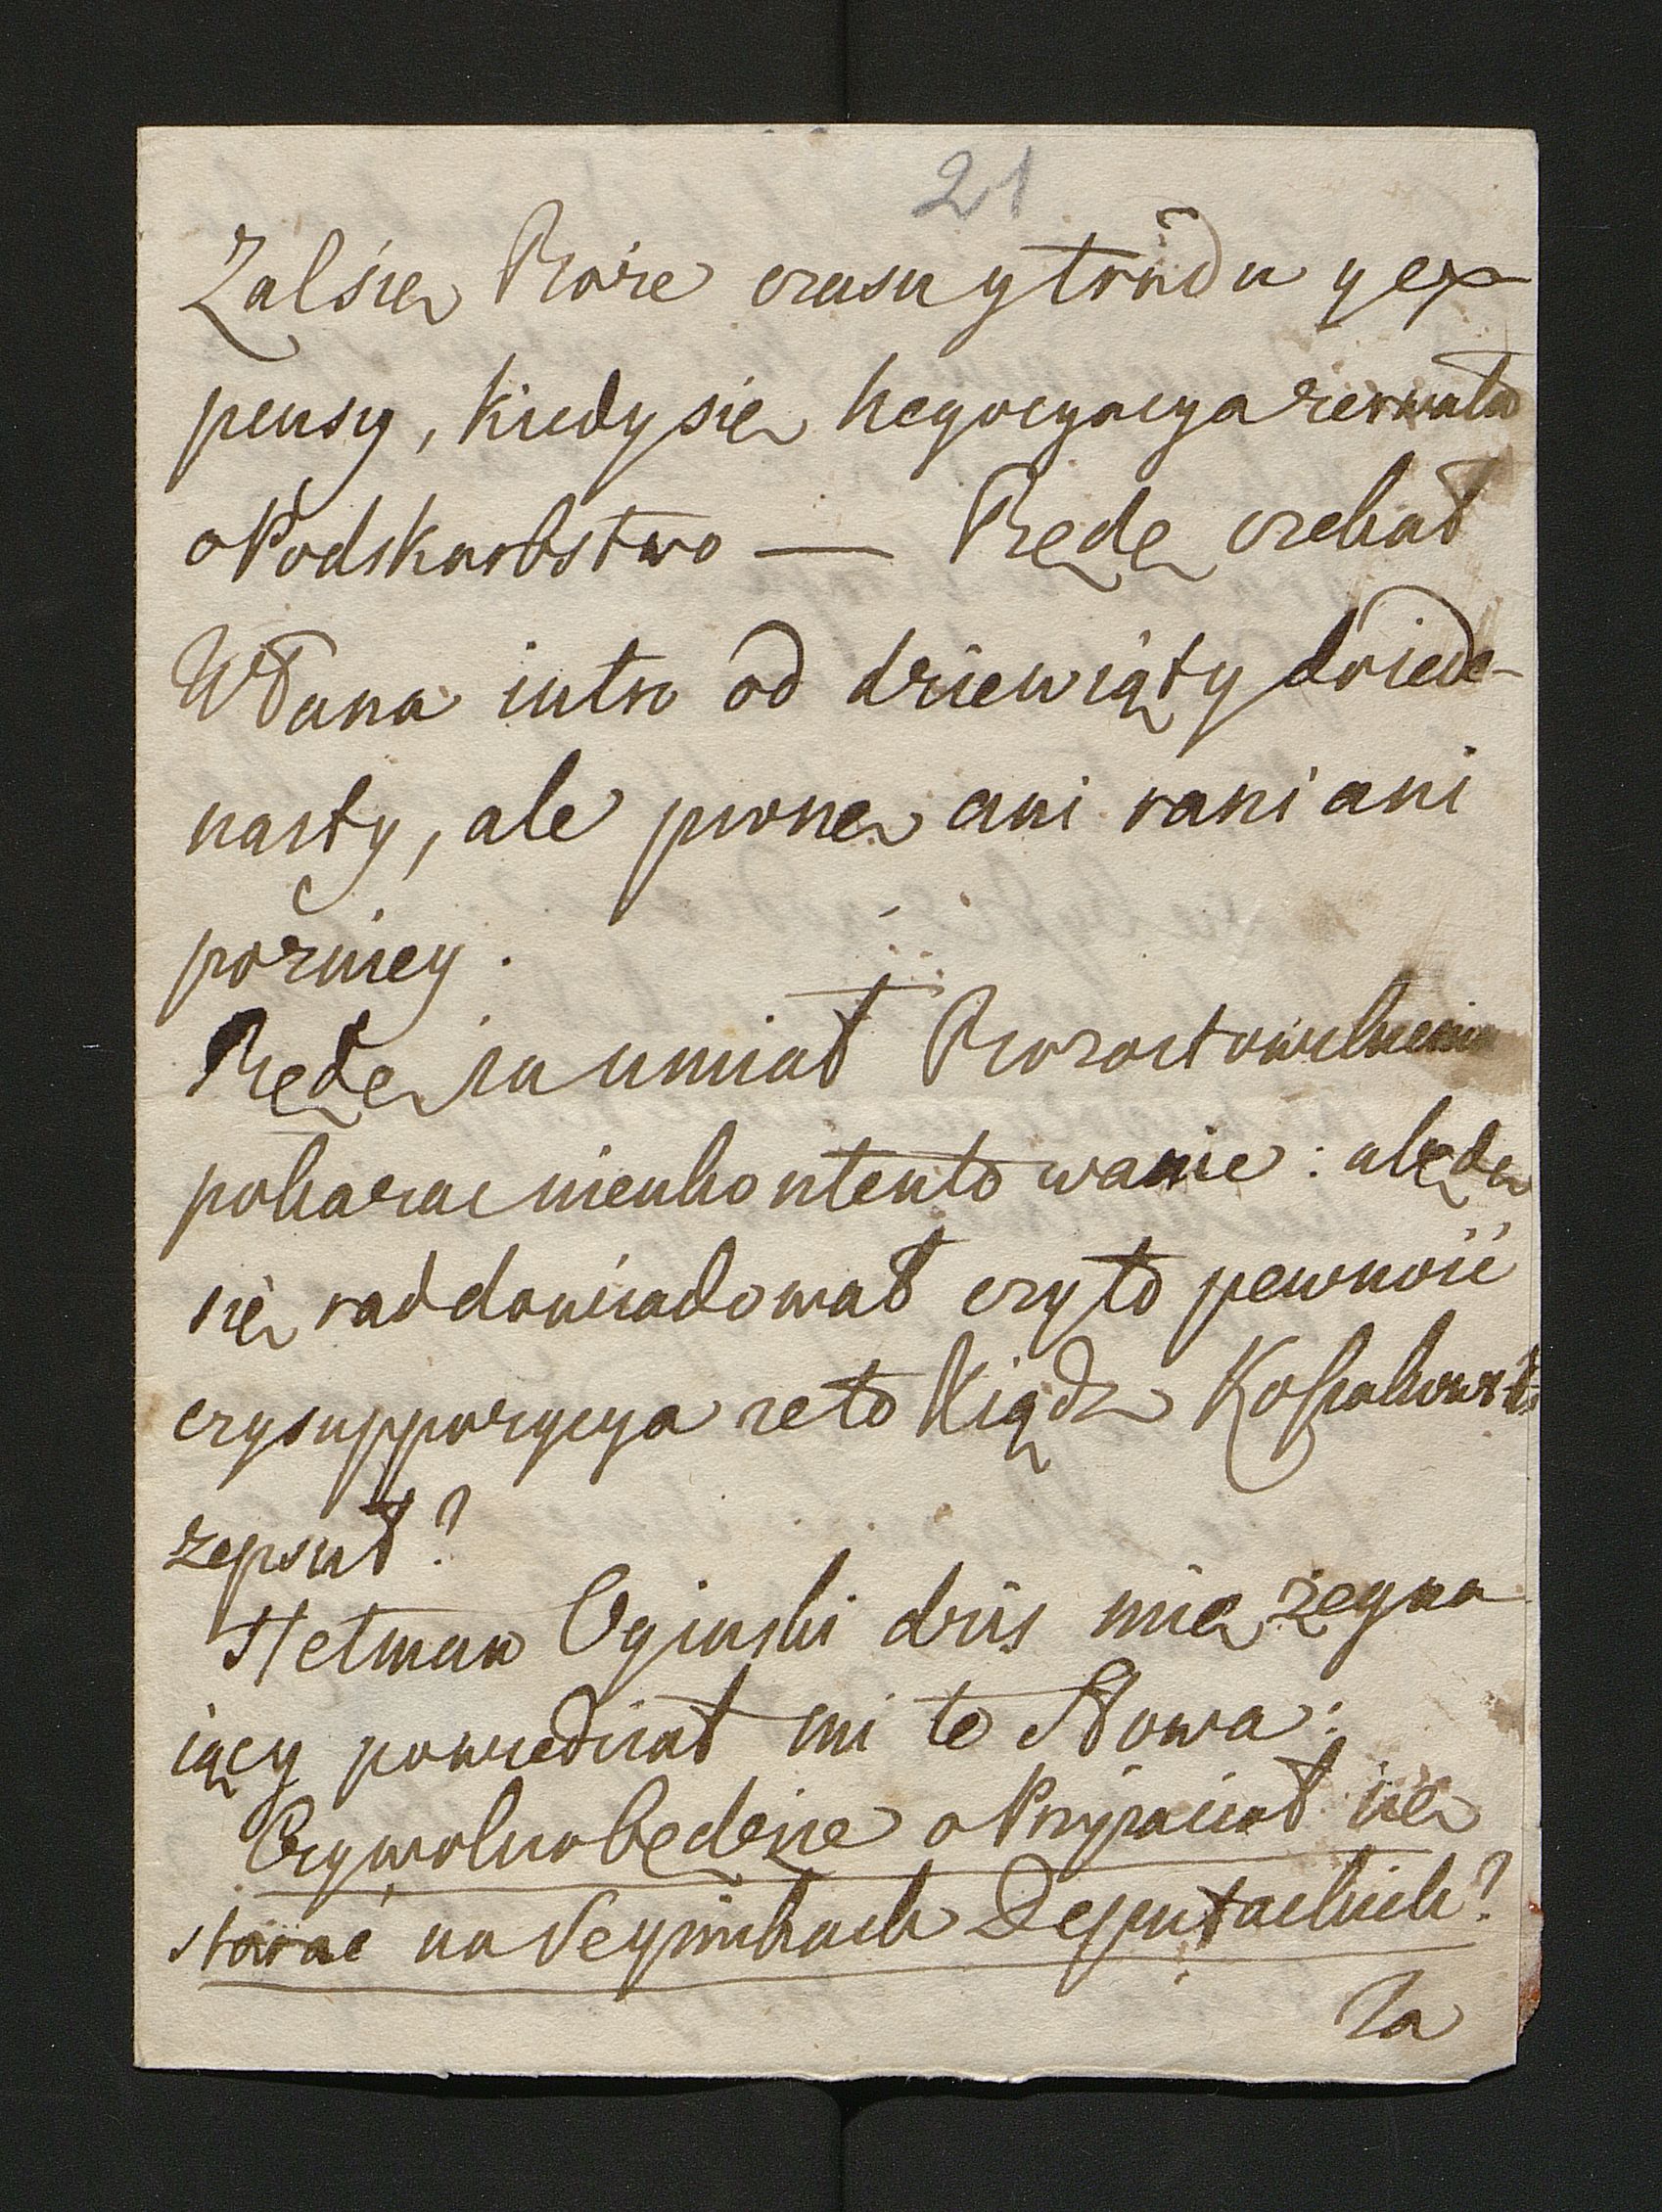 21
Zal się Boże czasu y trudu y ex-
pensy, kiedy się negocyacya zerwała
o Podskarbstwo — Będę czekał
WPana iutro od dziewiąty do iede-
nasty, ale pewne ani rani ani
pozniey.
Będę ia umiał Brzostowskiemu
pokazac nieukontentowanie: ale bęndę
się rad dowiadował czy to pewność
czy suppozycya że to Xiądz Kossakowski
zepsuł?
Hetman Oginski dziś mię żegna-
iący powiedział mi te słowa:
Czy wolno będzie o Przyiaciół się
starać na Seymikach Deputackich?
Ia